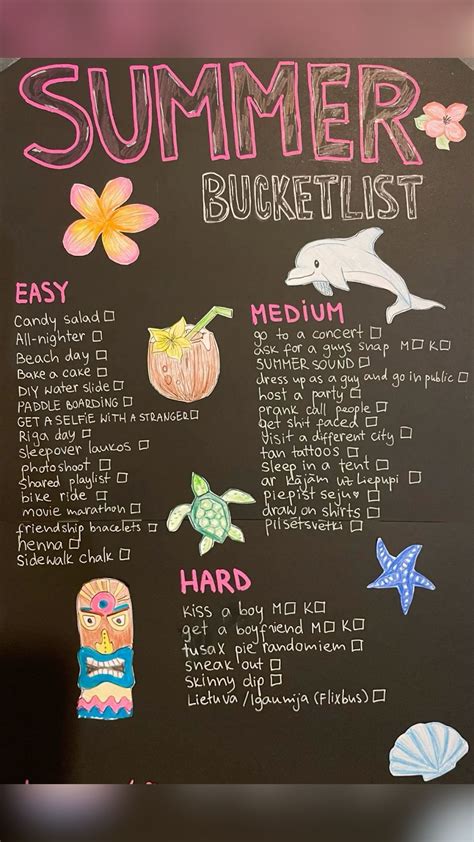 SUMMER
BUCKETLIST
EASY
Candy salad
All-nighter
Beach day
Bake a cake
DIY water slide
PADDLE BOARDING
GET A SELFIE WITH A STRANGER
Riga day
sleepover laukos
photoshoot
shared playlist
bike ride
movie marathon
friendship bracelets
henna
Sidewalk chalk
MEDIUM
go to a concert
ask for a guys snap M K
SUMMER SOUND
dress up as a guy and go in public
host a party
prank call people
get shit faced
visit a different city
tan tattoos
sleep in a tent
ar kājām uz Liepupi
piepist seju
draw on shirts
pilsētsvētki
HARD
kiss a boy M K
get a boyfriend M K
tusax pie randomiem
sneak out
skinny dip
Lietuva / Igaunija (Flixbus)